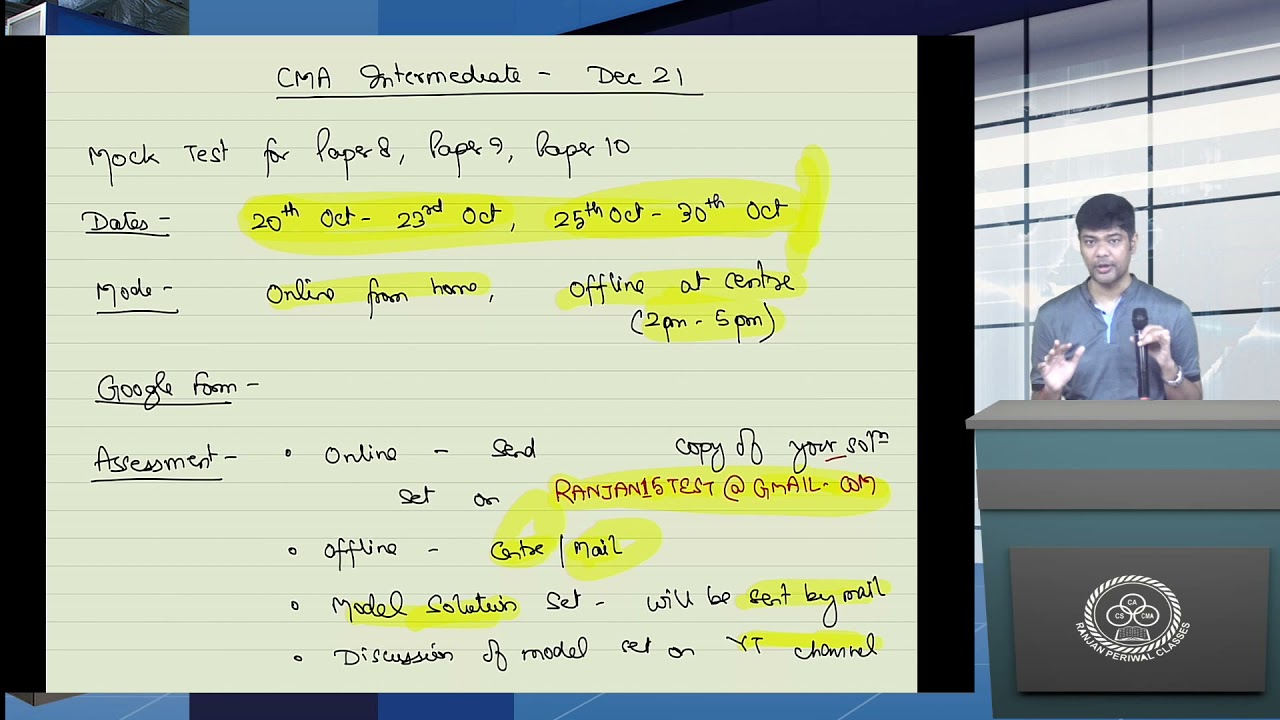 CMA Intermediate - Dec 21
Mock Test for Paper 8, Paper 9, Paper 10
Dates - 20th Oct - 23rd Oct, 25th Oct - 30th Oct
Mode - Online from home, Offline at centre
(2pm - 5pm)
Google Form -
Assessment - • Online - Send copy of your soln
set on RANJAN15TEST@GMAIL.COM
• Offline - Centre | Mail
• Model Solution Set - will be sent by mail
• Discussion of model set on YT channel
CA
CS CMA
RANJAN PERIWAL CLASSES